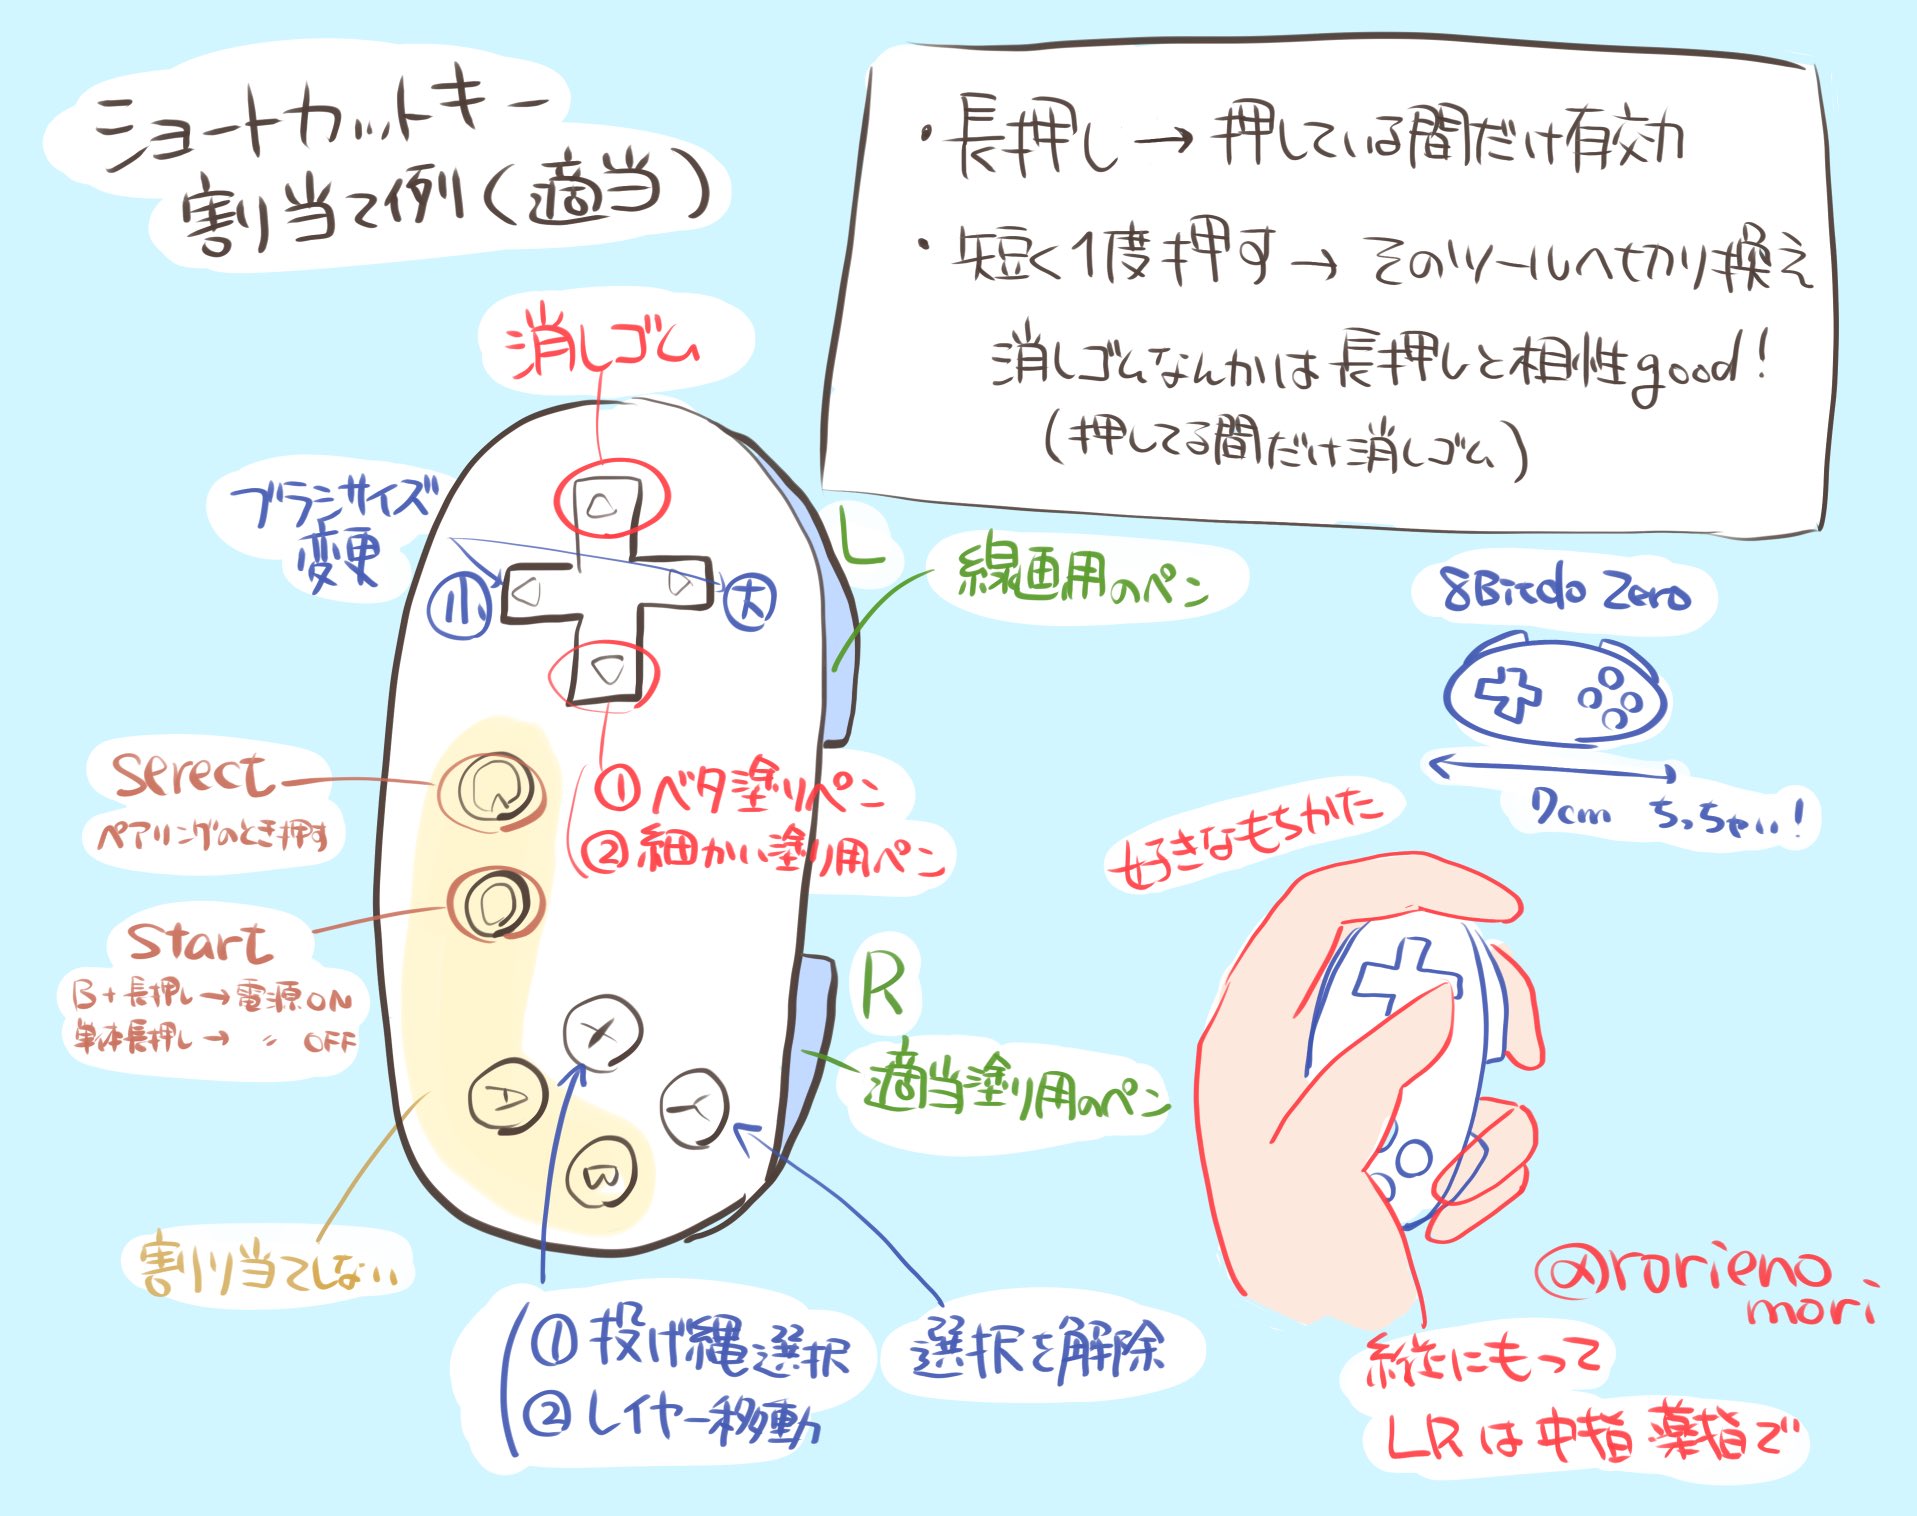 ショートカットキー
割り当て例(適当)
・長押し→押している間だけ有効
・短く1度押す→そのツールへ切り換え
消しゴムなんかは長押しと相性good!
(押してる間だけ消しゴム)
消しゴム
ブラシサイズ
変更
小
大
L
線画用のペン
8Bitdo Zero
7cm ちっちゃい!
Serect
ペアリングのとき押す
①ベタ塗りペン
②細かい塗り用ペン
Start
B+長押し→電源ON
単体長押し→ 〃 OFF
R
適当塗り用のペン
X
A
Y
B
割り当てしない
①投げ縄選択
②レイヤー移動
選択を解除
好きなもちかた
@rorieno
mori
縦にもって
LRは中指 薬指で